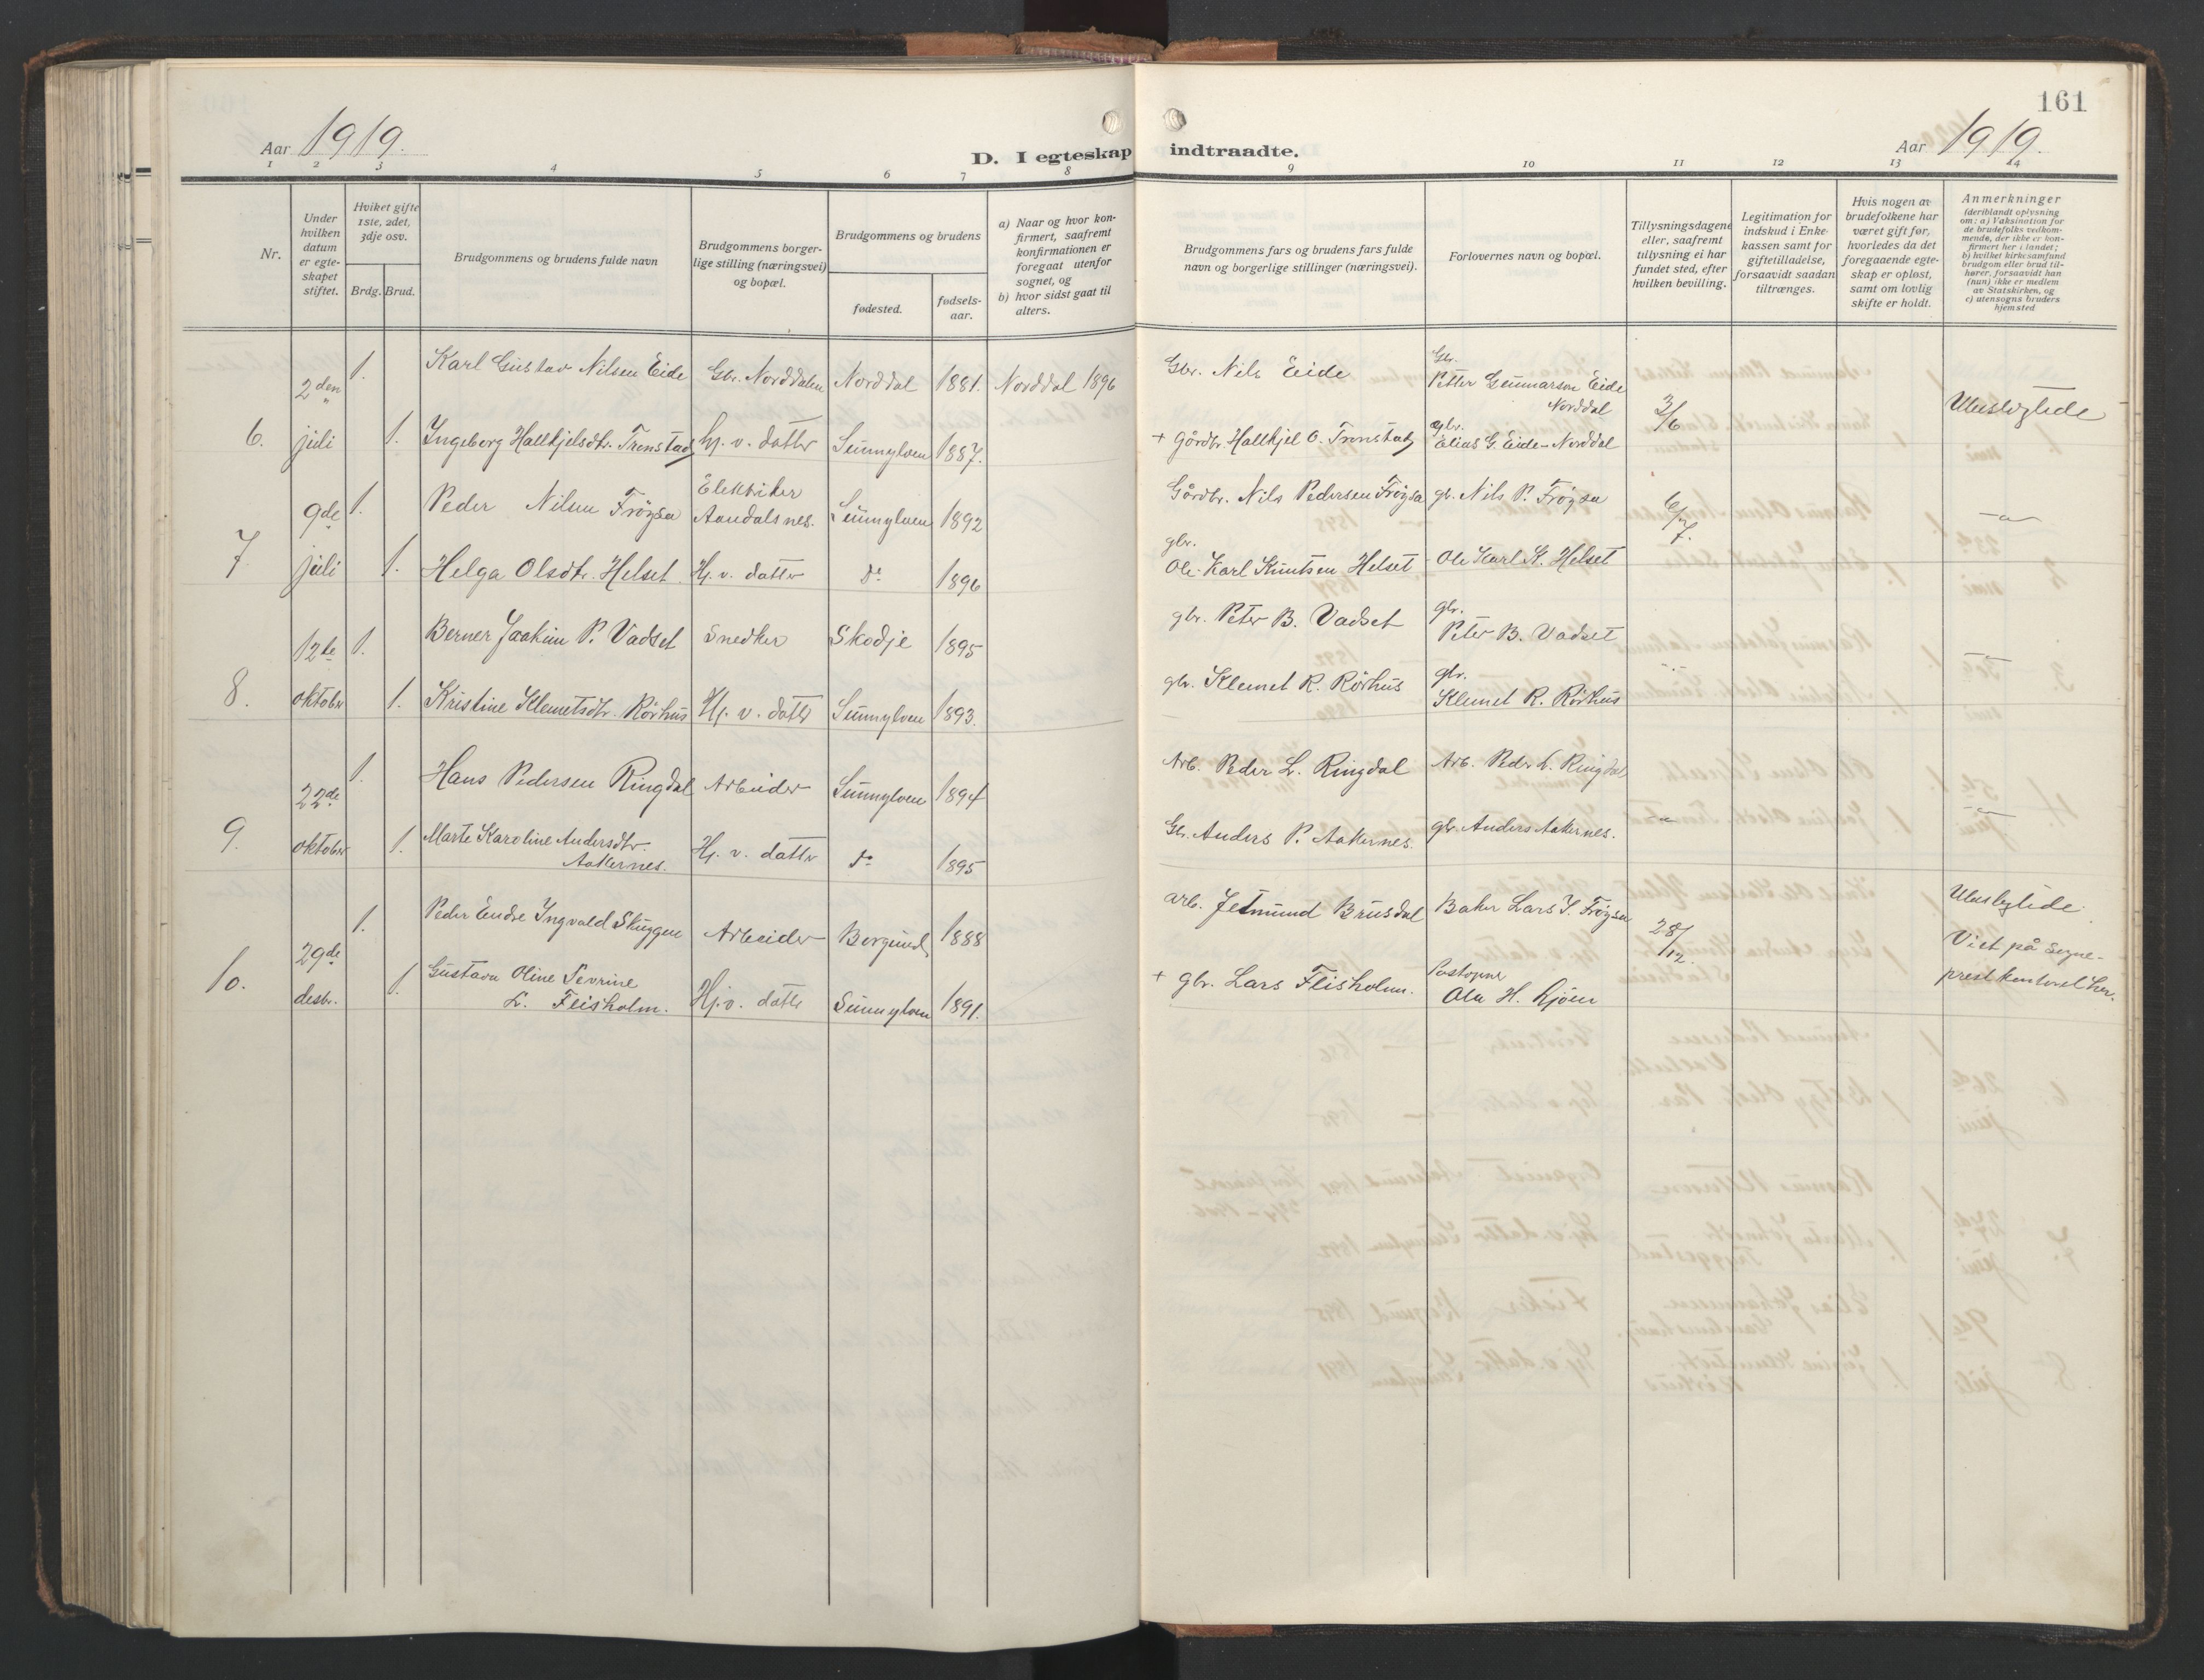 161
Aar 1919.
D. I egteskap indtraadte.
Aar 1919.
1 2 3 4 5 6 7 8 9 10 11 12 13 14
Nr.
Under hvilken datum er egte-skapet stiftet.
Hviket gifte 1ste, 2det, 3dje osv.
Brdg. Brud.
Brudgommens og brudens fulde navn
Brudgommens borger-lige stilling (næringsvei) og bopæl.
Brudgommens og brudens
fødested.
fødsels-aar.
a) Naar og hvor kon-firmert, saafremt konfirmationen er foregaat utenfor sognet, og
b) hvor sidst gaat til alters.
Brudgommens fars og brudens fars fulde navn og borgerlige stillinger (næringsvei).
Forlovernes navn og bopæl.
Tillysningsdagene eller, saafremt tillysning ei har fundet sted, efter hvilken bevilling.
Legitimation for indskud i Enke-kassen samt for giftetilladelse, forsaavidt saadan tiltrænges.
Hvis nogen av brudefolkene har været gift før, hvorledes da det foregaaende egte-skap er opløst, samt om lovlig skifte er holdt.
Anmerkninger
(deriblandt oplysning om: a) Vaksination for de brudefolks vedkom-mende, der ikke er kon-firmert her i landet; b) hvilket kirkesamfund brudgom eller brud til-hører, forsaavidt han (hun) ikke er medlem av Statskirken, og c) utensogns bruders hjemsted
2den 1. Karl Gustav Nilsen Eide Gbr. Norddalen Norddal 1881. Norddal 1896 Gbr. Nils Eide Gbr. Petter Gunnarson Eide Norddal 3/6 Ubeslegtede
6. juli 1. Ingeborg Hallkjelsdtr. Tronstad hj. v. datter Sunnylven 1887. + gårdbr. Hallkjel O. Tronstad gbr. Elias G. Eide - Norddal
9de 1. Peder Nilsen Frøysa Elektriker Aandalsnes. Sunnylven 1892 Gårdbr. Nils Pedersen Frøysa gb. Nils P. Frøysa 6/7.
7 juli 1. Helga Olsdtr. Helset Hj. v. datter do 1896 gbr. Ole Karl Knutsen Helset Ole Karl K. Helset
12te 1. Berner Joakim P. Vadset Snedker Skodje 1895 gbr. Peter B. Vadset gbr. Peter B. Vadset
8. oktober 1. Kristine Klemetsdtr. Rørhus Hj. v. datter Sunnylven 1893. gbr. Klemet R. Rørhus gbr. Klemet R. Rørhus
22de 1. Hans Pedersen Ringdal Arbeider Sunnylven 1894 Arb. Peder L. Ringdal Arb. Peder L. Ringdal
9. oktober 1. Marte Karoline Andersdtr. Aakernes. Hj. v. datter do 1895 Gb. Anders P. Aakernes. gbr. Anders Aakernes.
29de 1. Peder Endre Ingvald Skuggen Arbeider Borgund 1888 arb. Jetmund Brusdal Baker Lars I. Frøysa 28/12. Ubeslegtede.
10. desbr. 1. Gustava Oline Sevrine L. Fleisholm. Hj. v. datter Sunnylven 1891. + gbr. Lars Fleisholm. Postopne Ola H. Ljøen Vist på sogne-prestkontoret her.